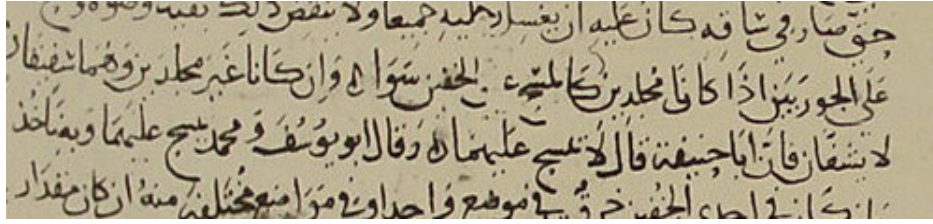 حتى صار في ساقه كان عليه ان يغسل رجليه جميعا ولا ينقض ذلك بقية وضوءه
على الجوربين اذا كانا مجلدين كالمسح على الخفين سواء وان كانا غير مجلدين وهما شفيقان
لا يشفان فان ابا حنيفة قال لا تمسح عليهما وقال ابو يوسف ومحمد يمسح عليهما وبه ناخذ
وان كان في احدى الخفين خرق في موضع واحد او في مواضع مختلفة منه ان كان مقدار